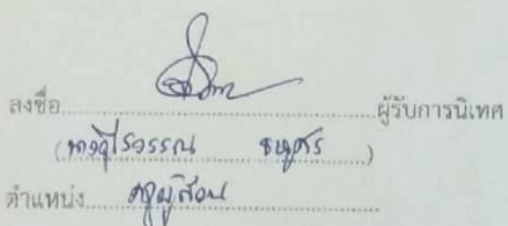 ลงชื่อ.....................ผู้รับการนิเทศ
(นางอุไรวรรณ )
ตำแหน่ง ครูผู้สอน